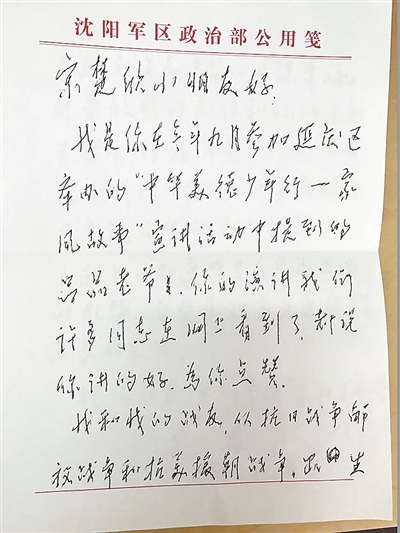 沈阳军区政治部公用笺
宗楚欣小朋友好：
我是你在今年九月参加延庆区
举办的"中华美德少年行—家
风故事"宣讲活动中提到的
吕品老爷爷．你的演讲我们
许多同志在网上看到了，都说
你讲的好．为你点赞．
我和我的战友，从抗日战争解
放战争和抗美援朝战争，出生